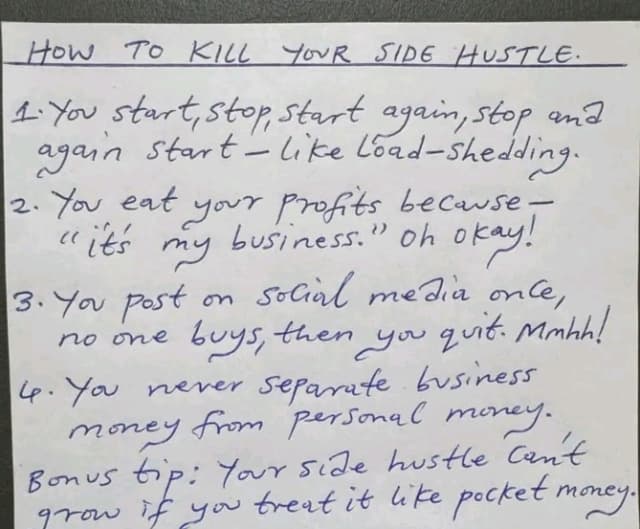 HOW TO KILL YOUR SIDE HUSTLE.
1. You start, stop, start again, stop and
again start – like load-shedding.
2. You eat your profits because –
"it's my business." oh okay!
3. You post on social media once,
no one buys, then you quit. Mmhh!
4. You never separate business
money from personal money.
Bonus tip: Your side hustle can't
grow if you treat it like pocket money.